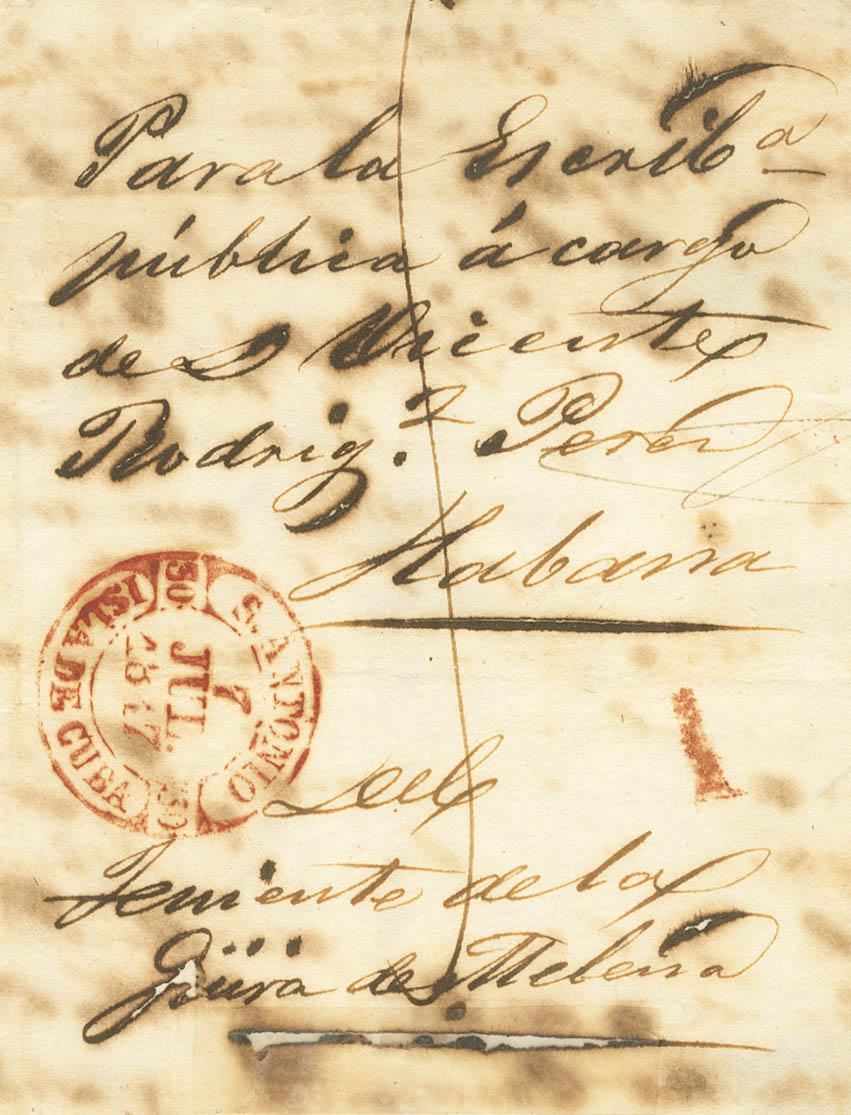 Para la Escrib.ª
pública á cargo
de D Vicente
Rodrig.z Perez
Habana
S. ANTONIO
30
7
JUL.
1847
ISLA DE CUBA
30
1
Del
Teniente de la
Güira de Melena